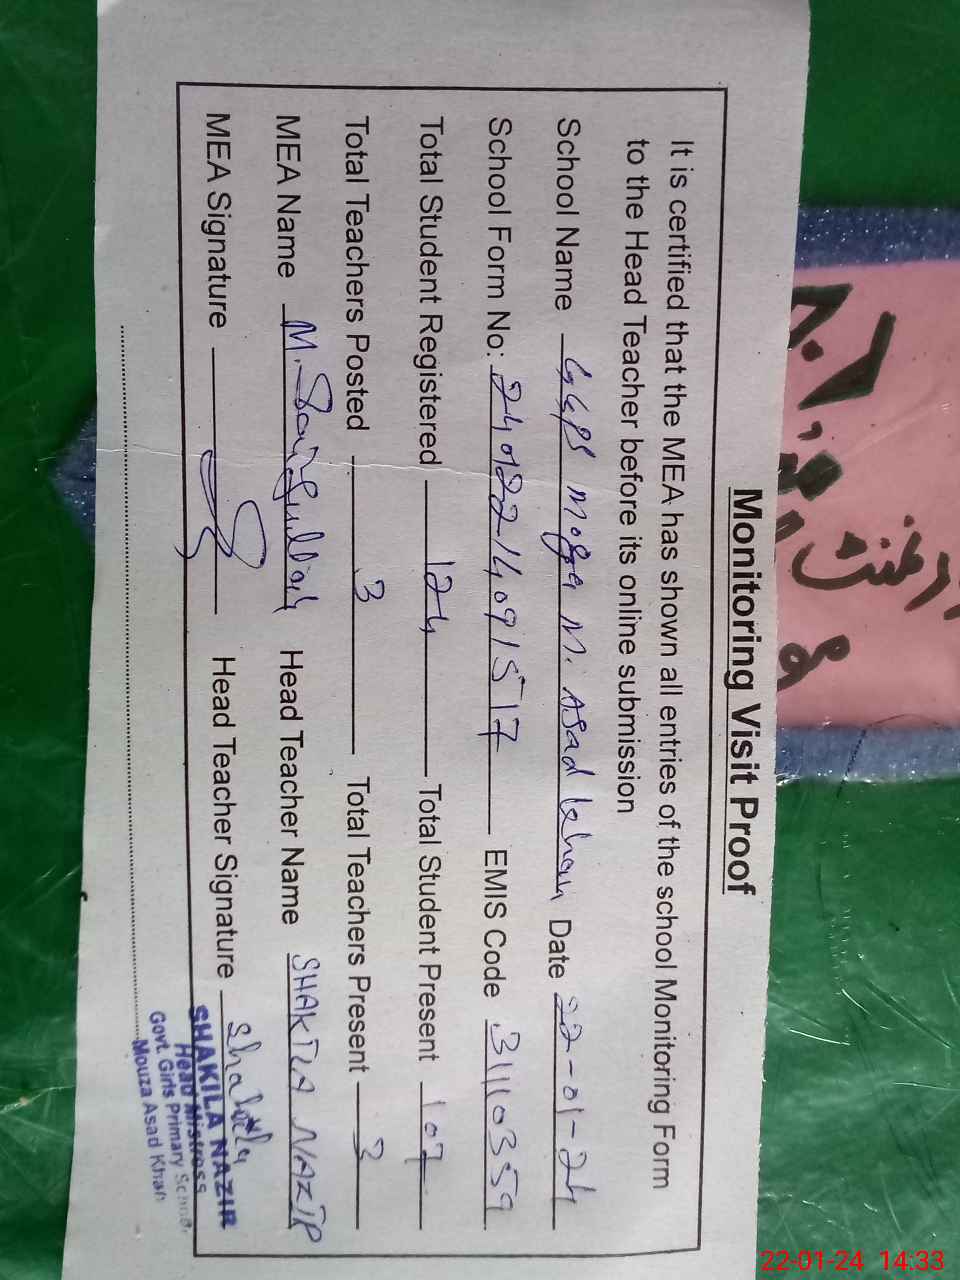 Monitoring Visit Proof
It is certified that the MEA has shown all entries of the school Monitoring Form
to the Head Teacher before its online submission
School Name GGPS Moza M. Asad khan Date 22-01-24
School Form No: 24012214091517 EMIS Code 31110359
Total Student Registered 124 Total Student Present 107
Total Teachers Posted 3 Total Teachers Present 3
MEA Name M. Saifullah Head Teacher Name SHAKILA NAZIR
MEA Signature Head Teacher Signature Shakila
SHAKILA NAZIR
Head Mistress
Govt. Girls Primary School
Mouza Asad Khan
22-01-24 14:33